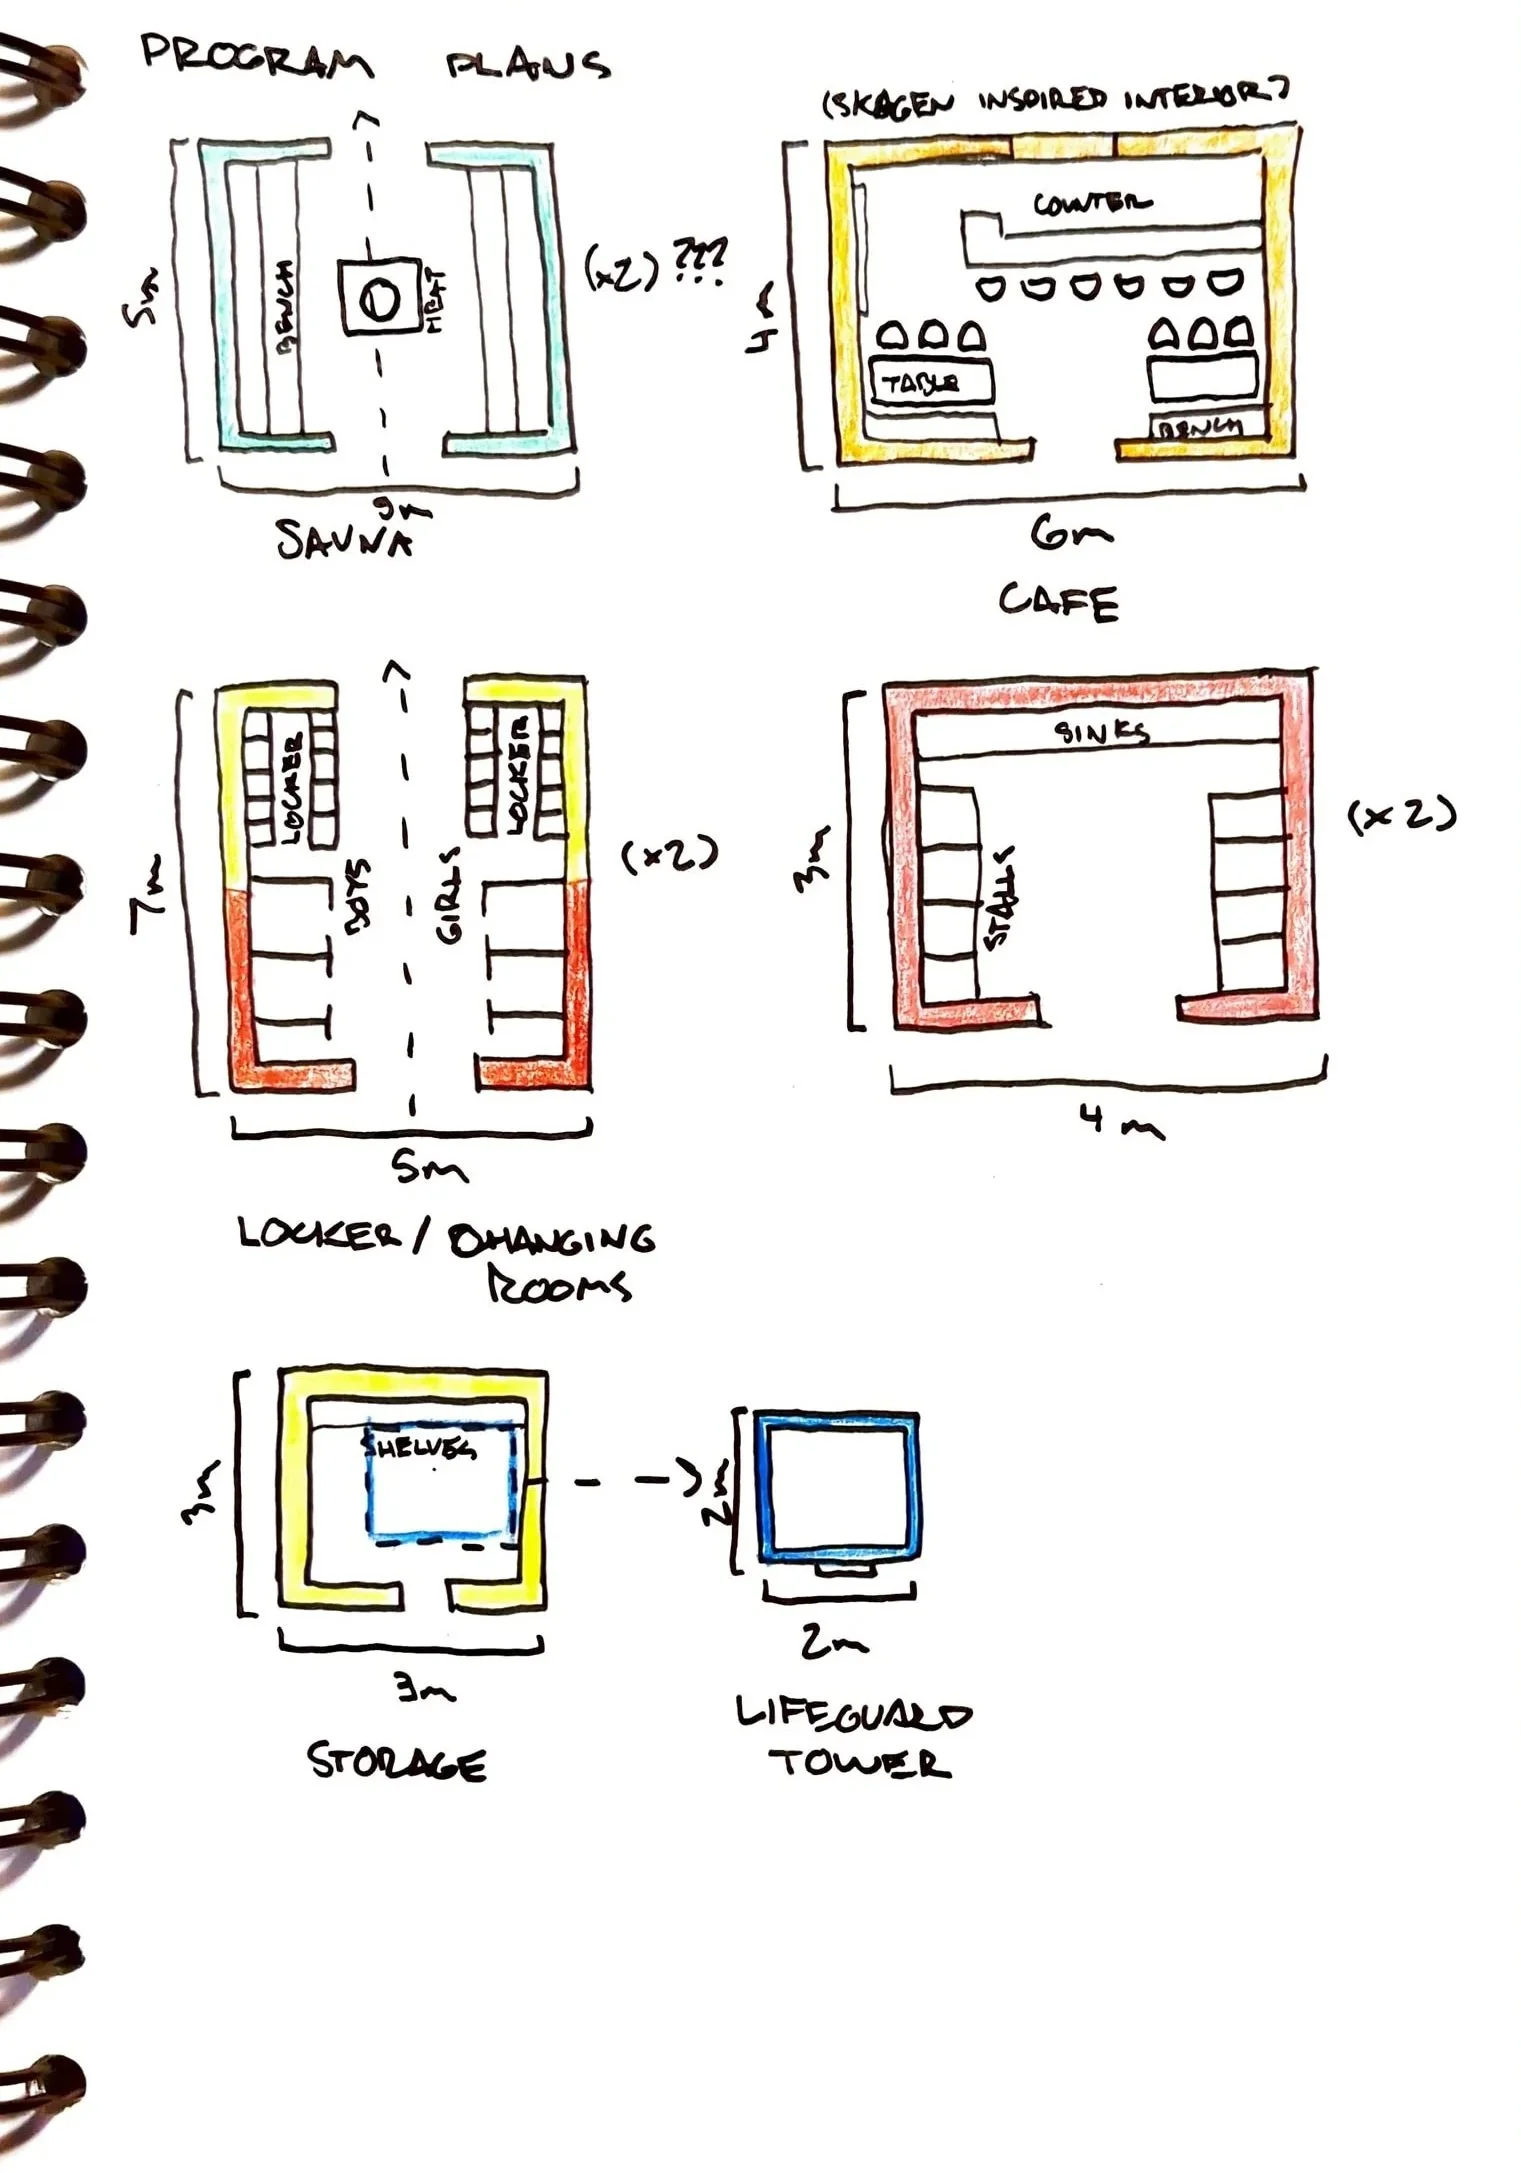 PROGRAM PLANS
5m
BENCH
HEAT
(x2) ???
SAUNA
(SKAGEN INSPIRED INTERIOR)
COUNTER
TABLE
BENCH
4m
6m
CAFE
7m
LOCKER
LOCKER
BOYS
GIRLS
(x2)
5m
LOCKER / CHANGING
ROOMS
3m
SINKS
STALLS
(x2)
4m
3m
SHELVES
3m
STORAGE
2m
2m
LIFEGUARD
TOWER